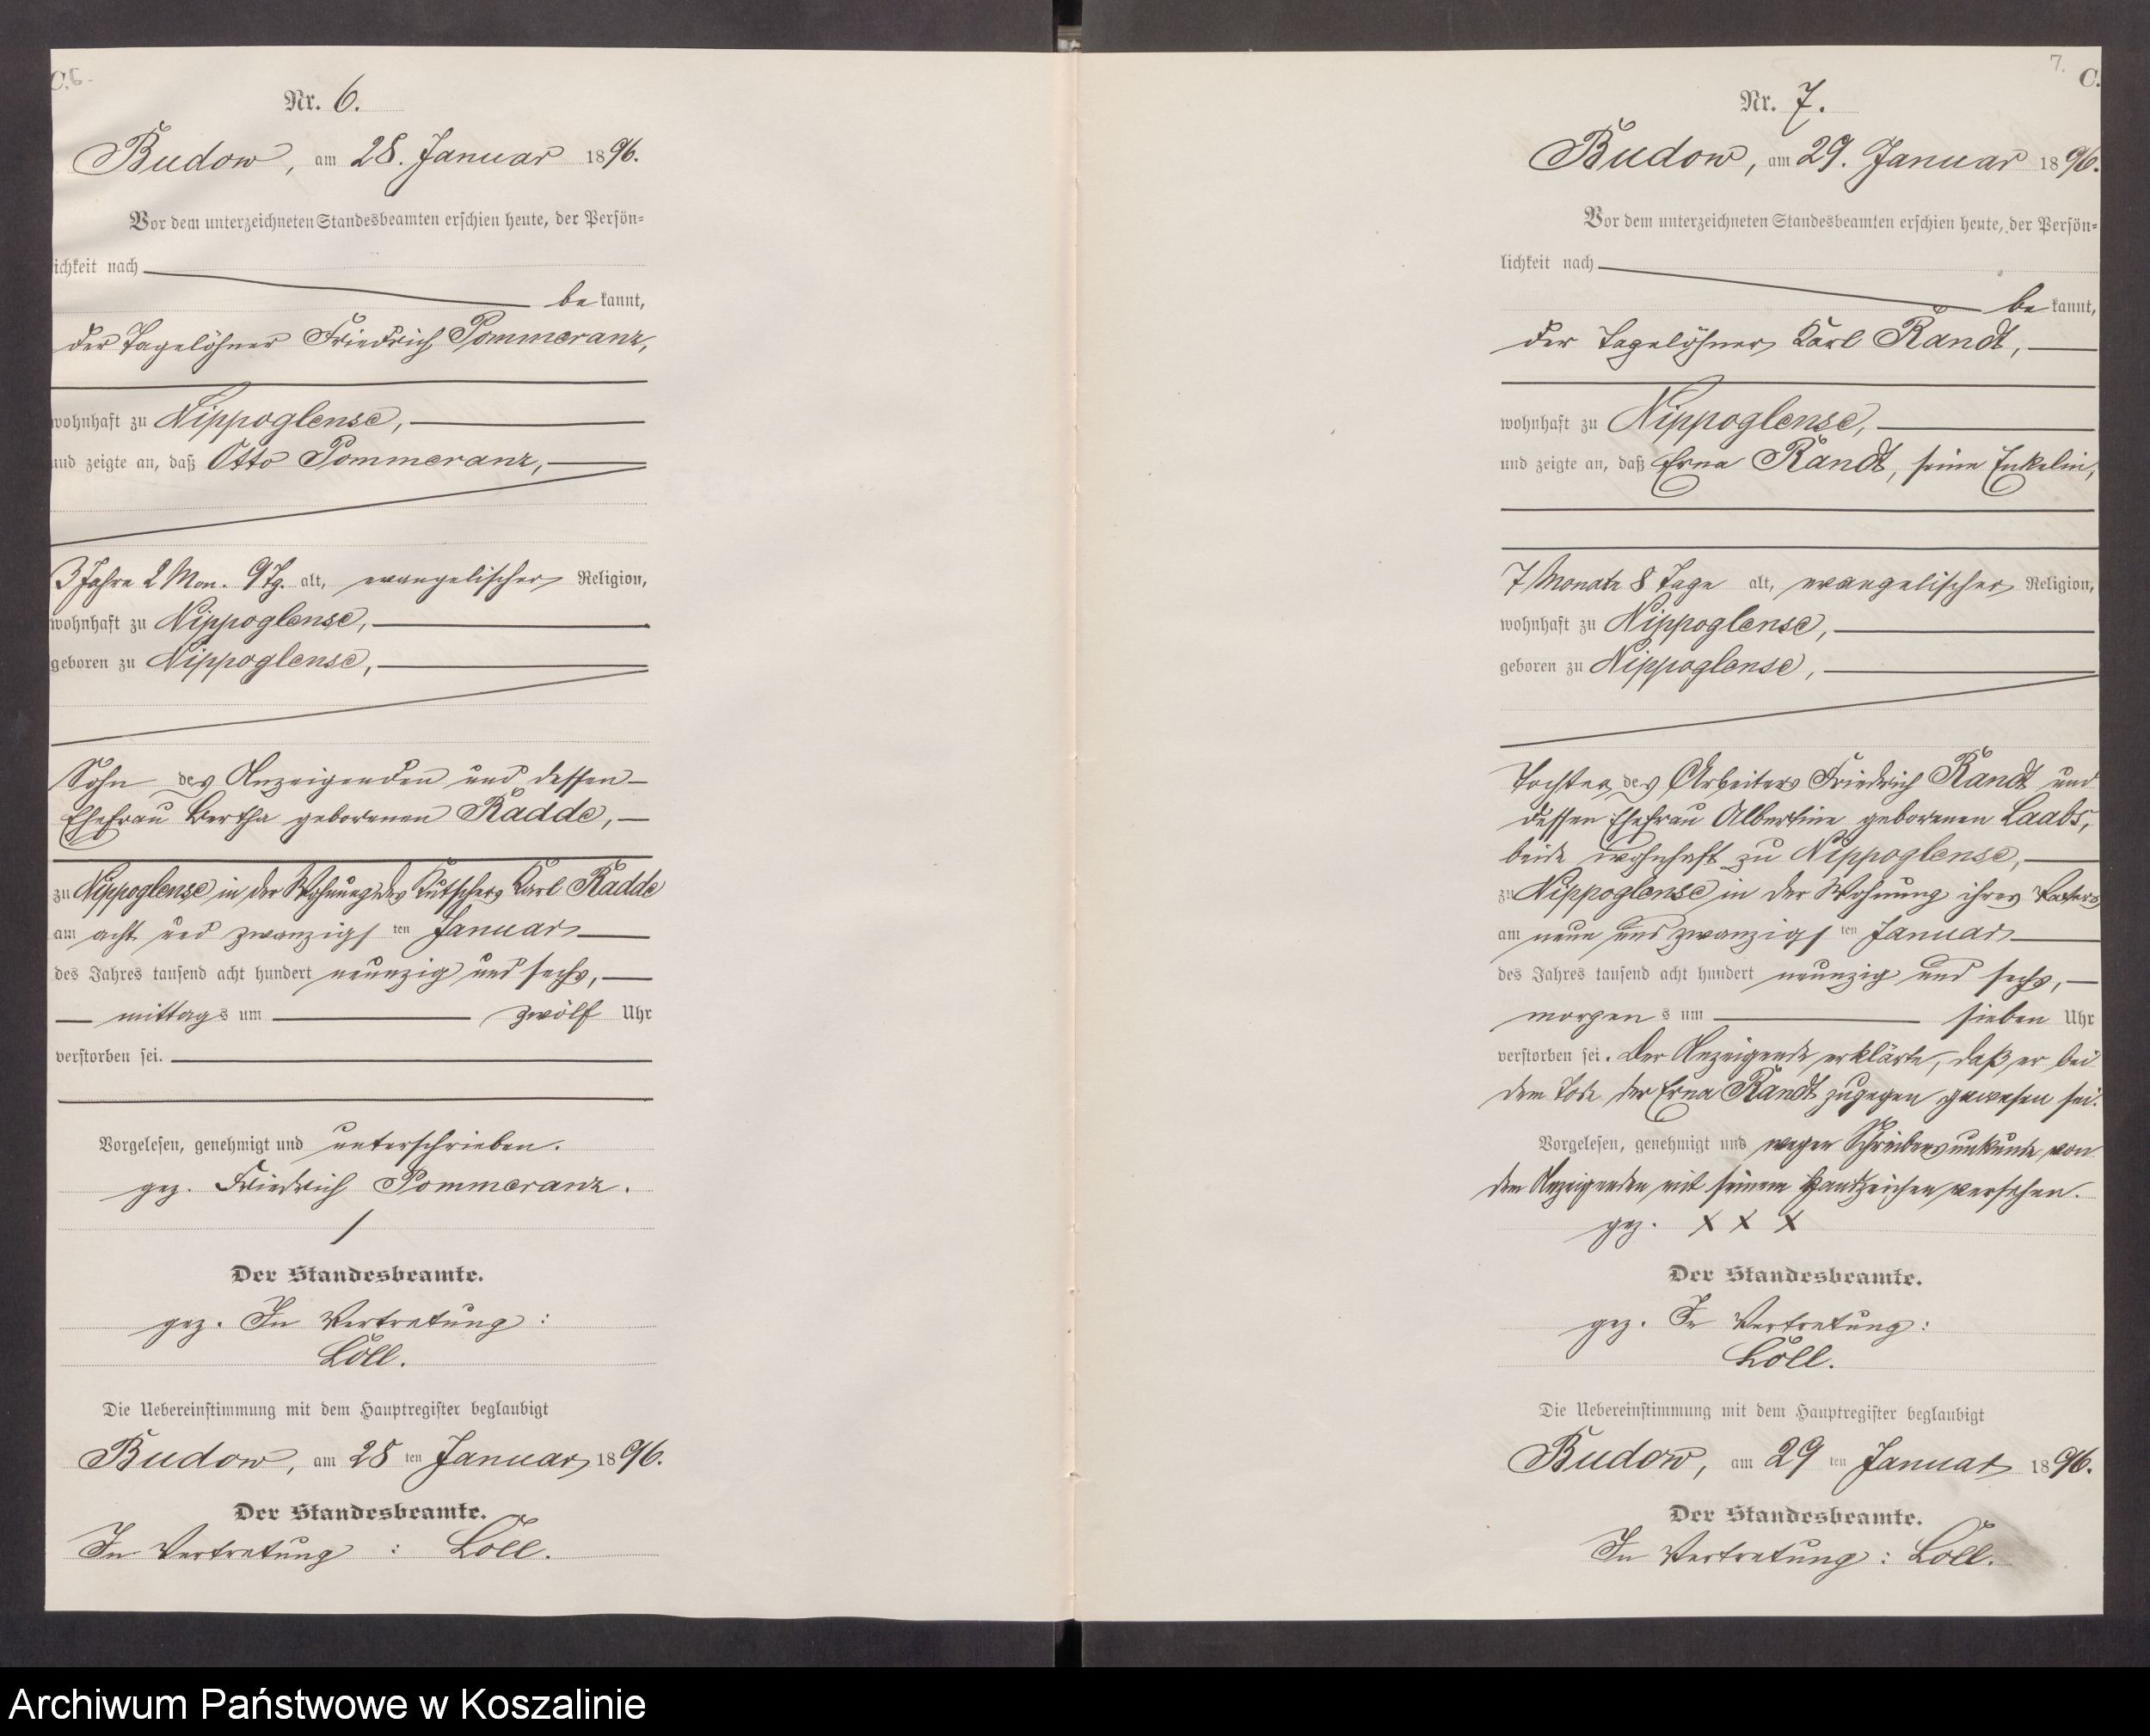 C. 6.
Nr. 6.
Budow, am 28. Januar 1896.
Vor dem unterzeichneten Standesbeamten erschien heute, der Persön-
lichkeit nach
bekannt,
der Tagelöhner Friedrich Pommeranz,
wohnhaft zu Nippoglense,
und zeigte an, daß Otto Pommeranz,
3 Jahre 2 Mon. 9 Tg. alt, evangelischer Religion,
wohnhaft zu Nippoglense,
geboren zu Nippoglense,
Sohn des Anzeigenden und dessen
Ehefrau Bertha geborenen Radde,
zu Nippoglense in der Wohnung des Kutschers Karl Radde
am acht und zwanzigsten Januar
des Jahres tausend acht hundert neunzig und sechs,
mittags um zwölf Uhr
verstorben sei.
Vorgelesen, genehmigt und unterschrieben.
gez. Friedrich Pommeranz.
Der Standesbeamte.
gez. In Vertretung:
Löll.
Die Uebereinstimmung mit dem Hauptregister beglaubigt
Budow, am 28 ten Januar 1896.
Der Standesbeamte.
In Vertretung: Löll.
7. C.
Nr. 7.
Budow, am 29. Januar 1896.
Vor dem unterzeichneten Standesbeamten erschien heute, der Persön-
lichkeit nach
bekannt,
der Tagelöhner Karl Randt,
wohnhaft zu Nippoglense,
und zeigte an, daß Erna Randt, seine Enkelin,
7 Monate 8 Tage alt, evangelischer Religion,
wohnhaft zu Nippoglense,
geboren zu Nippoglense,
Tochter des Arbeiters Friedrich Randt und
dessen Ehefrau Albertine geborenen Laabs,
beide wohnhaft zu Nippoglense,
zu Nippoglense in der Wohnung ihres Vaters
am neun und zwanzigsten Januar
des Jahres tausend acht hundert neunzig und sechs,
morgens um sieben Uhr
verstorben sei. Der Anzeigende erklärte, daß er bei
dem Tode der Erna Randt zugegen gewesen sei.
Vorgelesen, genehmigt und wegen Schreibensunkunde von
dem Anzeigenden mit seinem Handzeichen versehen.
gez. X X X
Der Standesbeamte.
gez. In Vertretung:
Löll.
Die Uebereinstimmung mit dem Hauptregister beglaubigt
Budow, am 29 ten Januar 1896.
Der Standesbeamte.
In Vertretung: Löll.
Archiwum Państwowe w Koszalinie